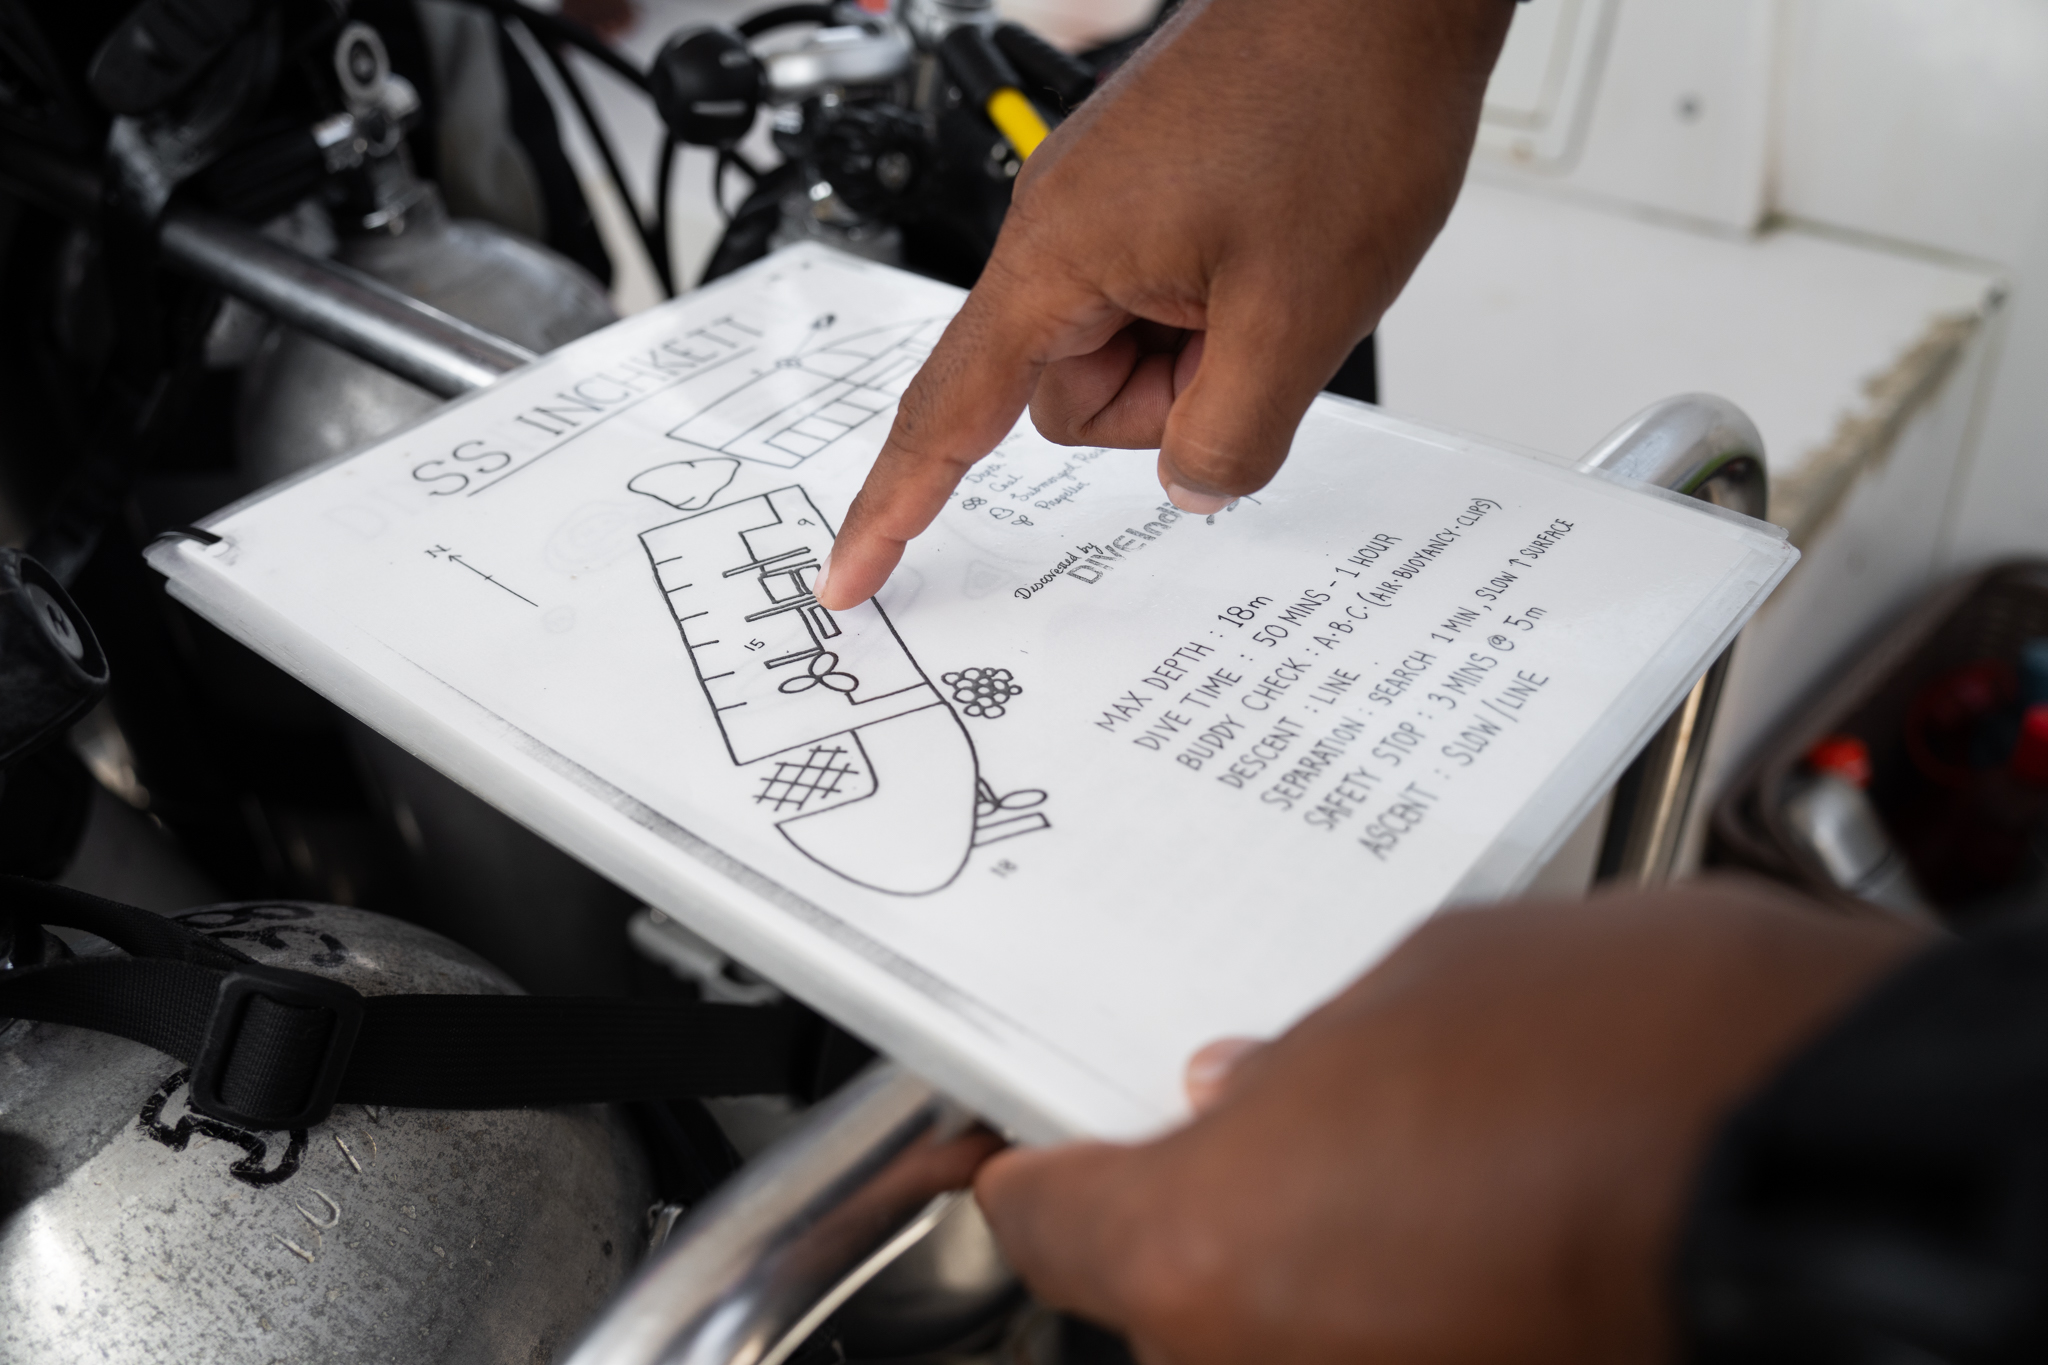 SS INCHKETT
N
9
15
18
Depth
Coal
Submerged
Propeller
Discovered by
DIVEIndia
MAX DEPTH : 18m
DIVE TIME : 50 MINS - 1 HOUR
BUDDY CHECK : A·B·C·(AIR·BUOYANCY·CLIPS)
DESCENT : LINE
SEPARATION : SEARCH 1 MIN, SLOW ↑ SURFACE
SAFETY STOP : 3 MINS @ 5m
ASCENT : SLOW / LINE